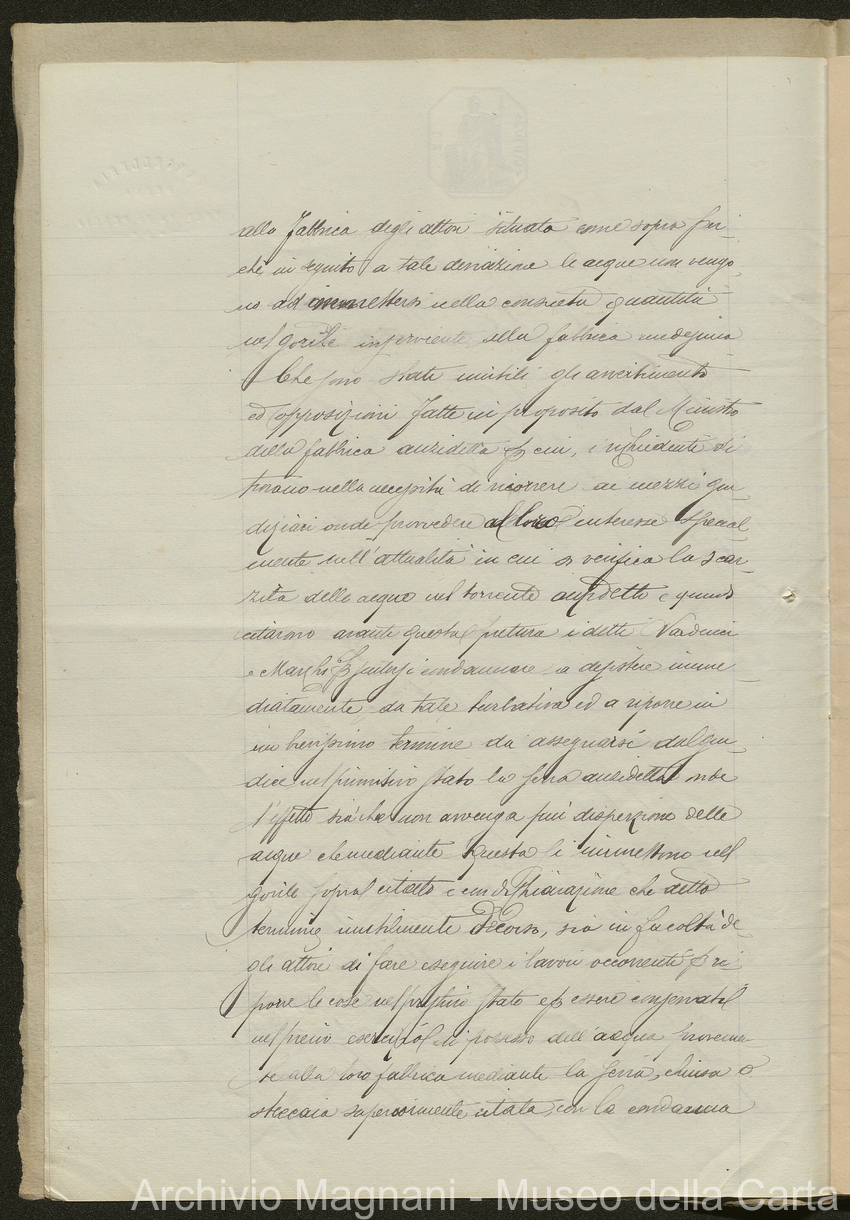 alla Fabbrica degli attori situata come sopra per-
chè in seguito a tale deviazione le acque non vengo
no ad immettersi nella consueta quantità
nel gorile inserviente alla fabbrica medesima
Che sono state inutili gli avvertimenti
ed opposizioni fatte in proposito dal Ministro
della fabbrica anzidetta per cui, i richiedenti si
trovano nella necessità di ricorrere ai mezzi giu-
diziari onde provvedere al loro interesse special
mente nell'attualità in cui si verifica la scar-
zità delle acque nel torrente anzidetto e quindi
citarono avanti questa pretura i detti
e per condannare a desistere imme
diatamente da tale turbativa ed a riporre in
un brevissimo termine da assegnarsi dal giu-
dice nel primitivo stato la serra anzidetta onde
l'effetto sia che non avvenga più dispersione delle
acque che mediante questa si immettono nel
gorile sopra citato e con dichiarazione che detto
termine inutilmente decorso, sia in facoltà de-
gli attori di fare eseguire i lavori occorrenti per ri
porre le cose nel pristino stato e per essere conservati
nel pieno esercizio di possesso dell'acqua provenien
te alla loro fabbrica mediante la serra, chiusa o
steccaia superiormente citata, con la condanna
Archivio Magnani - Museo della Carta